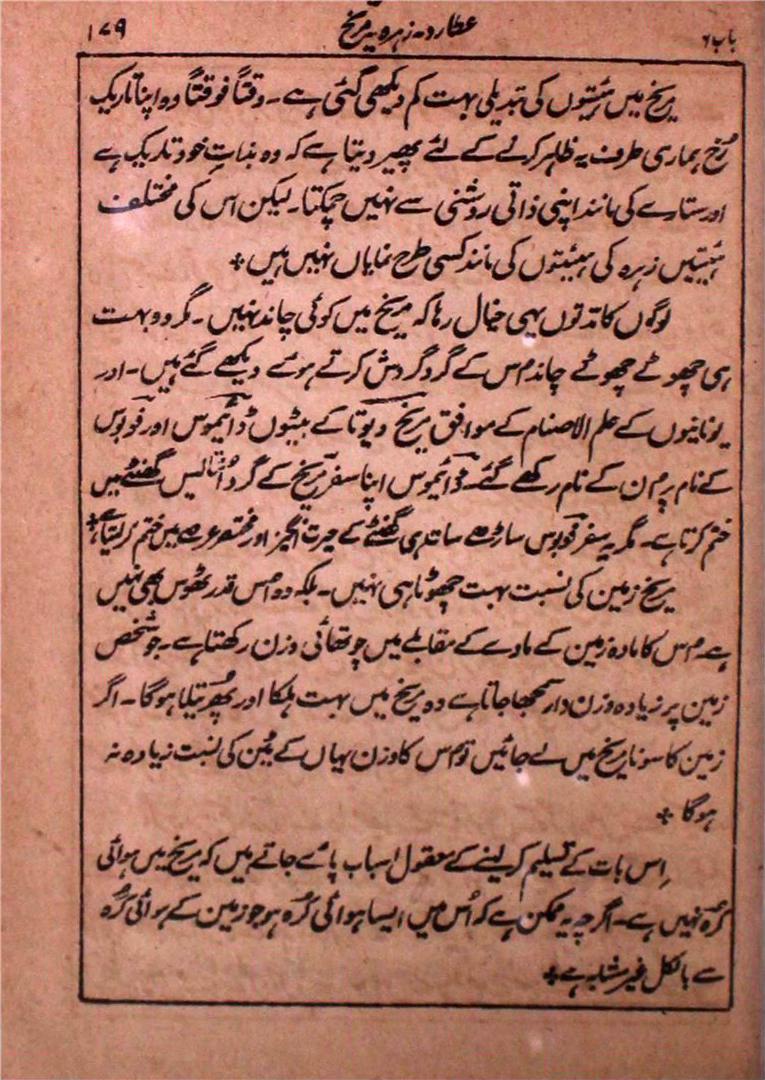 باب ۶
عطارد۔ زہرہ۔ مریخ
۱۷۹
مریخ میں ہئیتوں کی تبدیلی بہت کم دیکھی گئی ہے۔ وقتاً فوقتاً وہ اپنا تاریک
رُخ ہماری طرف یہ ظاہر کرنے کے لئے پھیر دیتا ہے کہ وہ بذاتِ خود تاریک ہے
اور ستارے کی مانند اپنی ذاتی روشنی سے نہیں چمکتا۔ لیکن اس کی مختلف
ہئیتیں زہرہ کی ہیئتوں کی مانند کسی طرح نمایاں نہیں ہیں ٭
لوگوں کا مدتوں یہی خیال رہا کہ مریخ میں کوئی چاند نہیں۔ مگر دو بہت
ہی چھوٹے چھوٹے چاند اس کے گرد گردش کرتے ہوئے دیکھے گئے ہیں۔ اور
یونانیوں کے علم الاصنام کے موافق مریخ دیوتا کے بیٹوں ڈائیموس اور فوبوس
کے نام پر ان کے نام رکھے گئے۔ ڈائیموس اپنا سفر مریخ کے گرد اُنتالیس گھنٹے میں
ختم کرتا ہے۔ مگر یہ سفر فوبوس ساڑھے سات ہی گھنٹے کے حیرت انگیز اور مختصر عرصے میں ختم کر لیتا ہے ٭
مریخ زمین کی نسبت بہت چھوٹا ہی نہیں۔ بلکہ وہ اس قدر ٹھوس بھی نہیں
ہے۔ اس کا مادہ زمین کے مادے کے مقابلے میں چوتھائی وزن رکھتا ہے۔ جو شخص
زمین پر زیادہ وزن دار سمجھا جاتا ہے وہ مریخ میں بہت ہلکا اور پھُرتیلا ہوگا۔ اگر
زمین کا سونا مریخ میں لے جائیں تو اس کا وزن یہاں کے ٹین کی نسبت زیادہ نہ
ہوگا ٭
اِس بات کے تسلیم کر لینے کے معقول اسباب پائے جاتے ہیں کہ مریخ میں ہوائی
کرّہ نہیں ہے۔ اگرچہ یہ ممکن ہے کہ اُس میں ایسا ہوائی کُرہ ہو جو زمین کے ہوائی کُرہ
سے بالکل غیر مشابہ ہے ٭